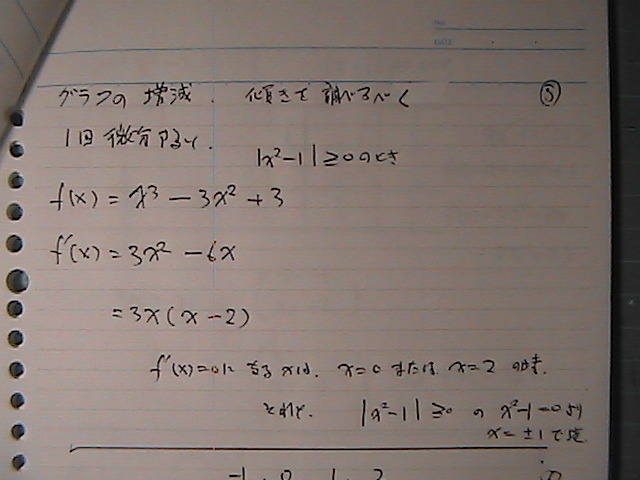 No.
DATE
グラフの増減. 傾きを調べるべく ⑤
1回微分すると.
|x²-1|≥0のとき
f(x) = x³ - 3x² + 3
f'(x) = 3x² - 6x
= 3x(x-2)
f'(x)=0になるxは. x=0 または x=2 のとき.
それと. |x²-1|≥0 の x²-1=0より
x=±1で
-1 0 1 2